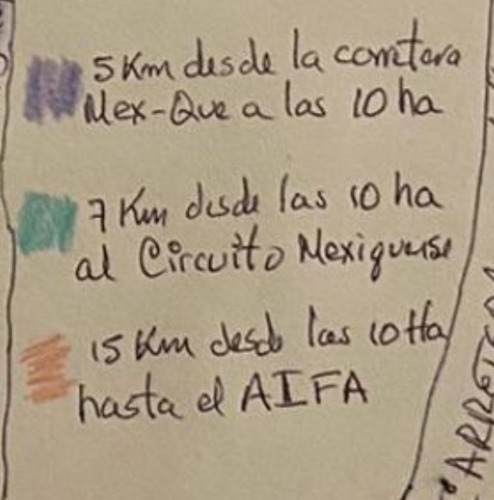 5 Km desde la carretera
Mex-Que a las 10 ha
7 Km desde las 10 ha
al Circuito Mexiquense
15 Km desde las 10 Ha
hasta el AIFA